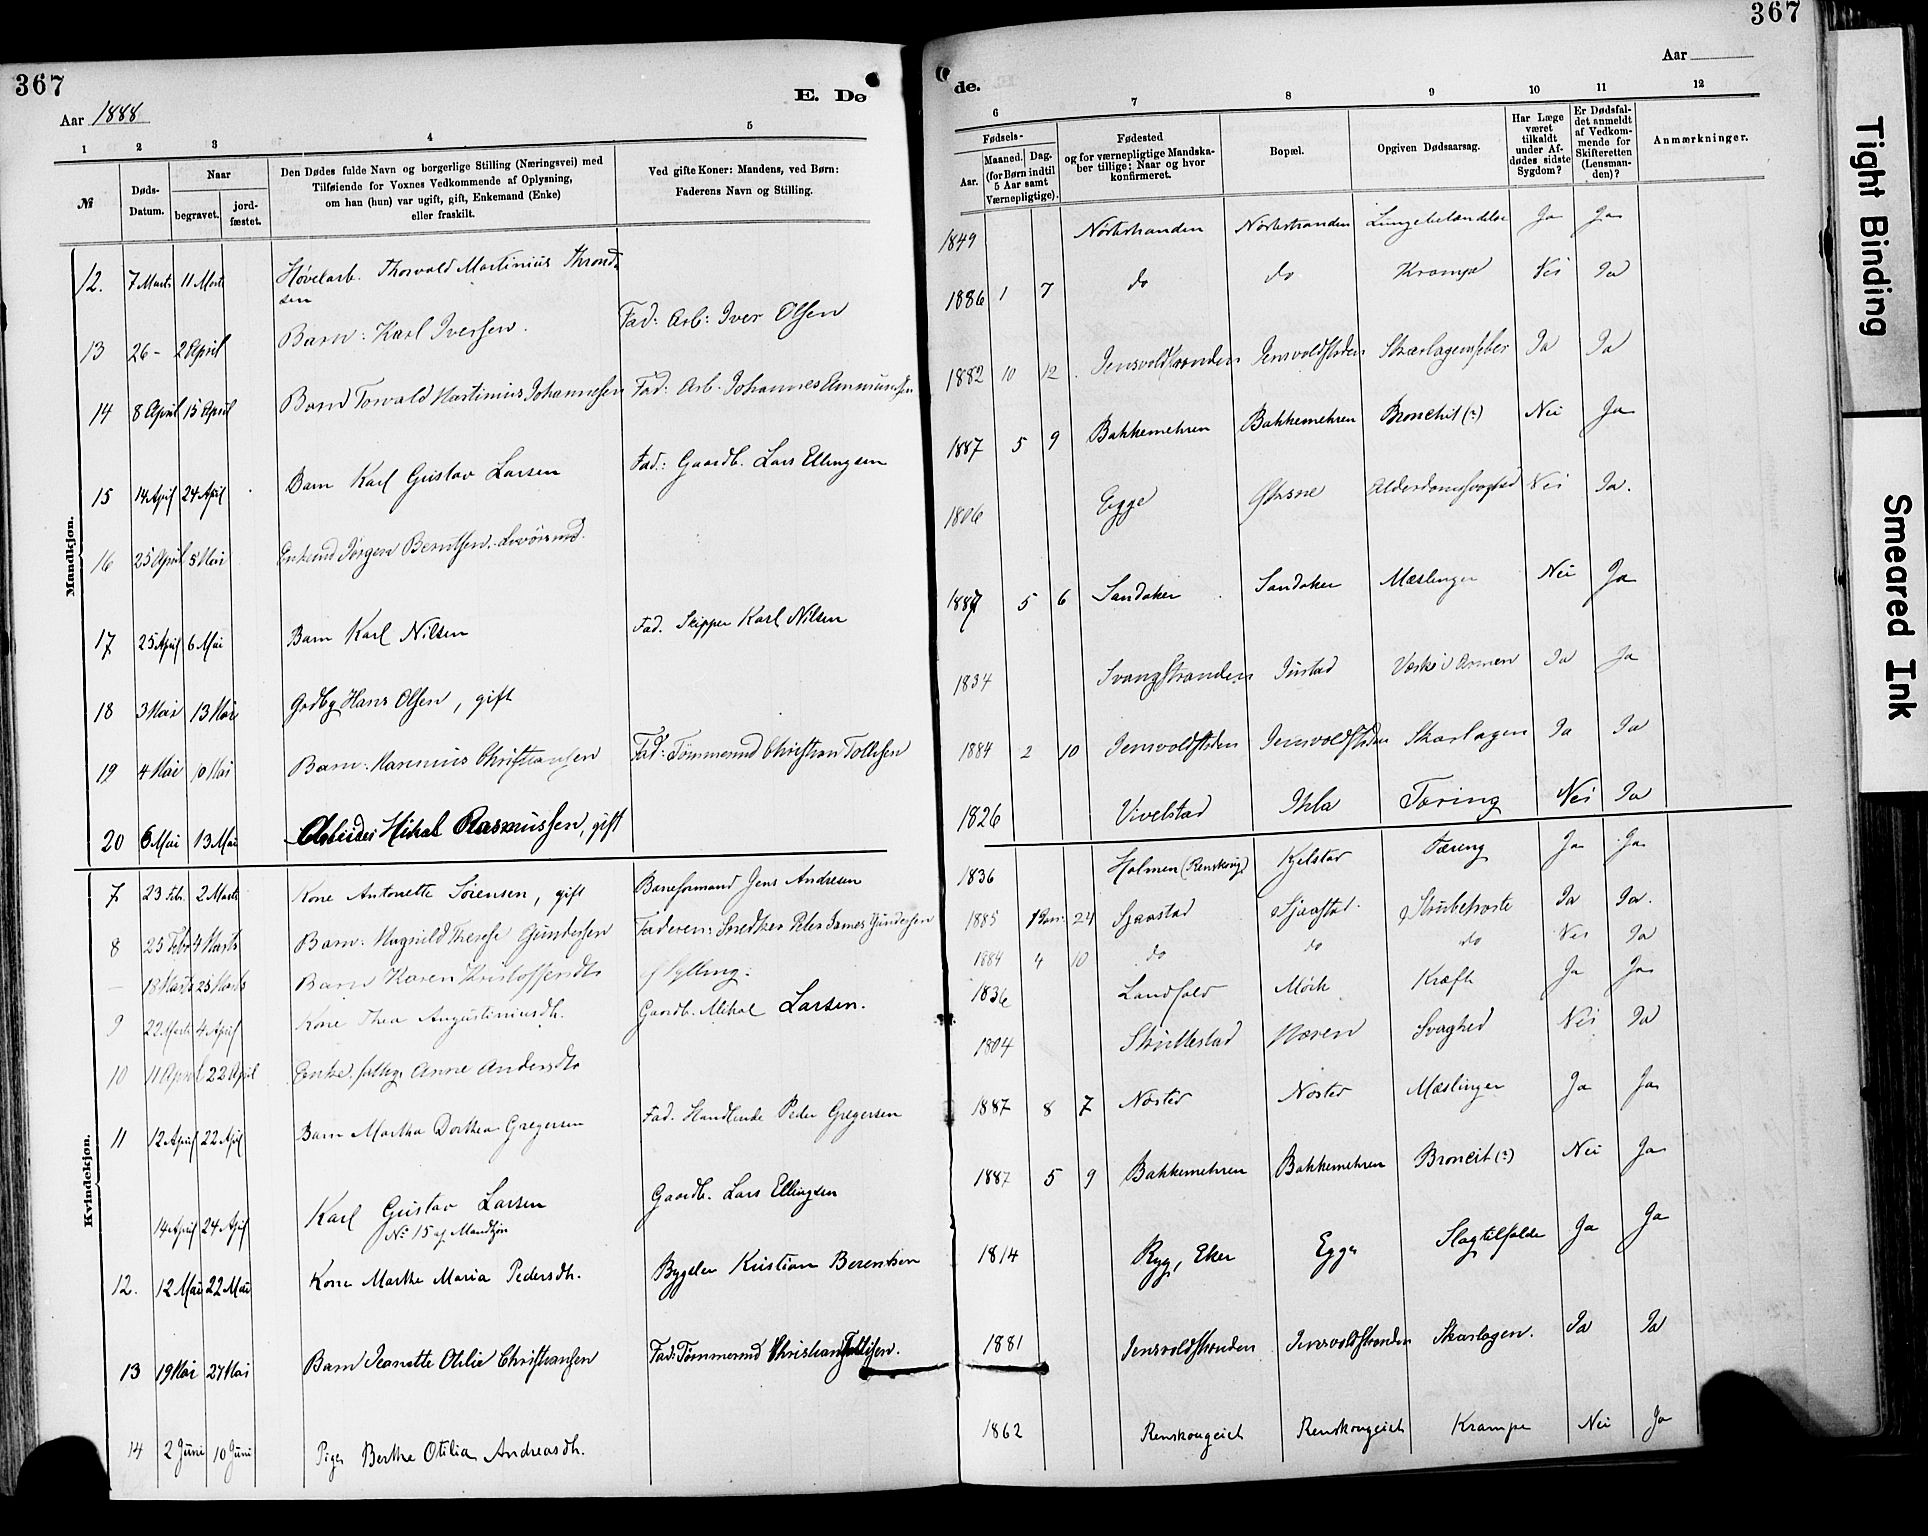 367
Aar 1888
E. Dø
1 2 3 4 5
№
Døds-Datum.
Naar
begravet.
jord-fæstet.
Den Dødes fulde Navn og borgerlige Stilling (Næringsvei) med
Tilføiende for Voxnes Vedkommende af Oplysning,
om han (hun) var ugift, gift, Enkemand (Enke)
eller fraskilt.
Ved gifte Koner: Mandens, ved Børn:
Faderens Navn og Stilling.
Mandkjøn.
12. 7 Marts 11 Marts Høvelarb. Thorvald Martinius Thrond-
sen
13 26 - 2 April Barn: Karl Iversen. Fad: Arb: Iver Olsen
14 8 April 15 April Barn Torvald Martinius Johannesen Fad: Arb. Johannes Ammundsen
15 14 April 24 April Barn Karl Gustav Larsen Fad: Gaardb. Lars Ellingsen
16 25 April 5 Mai Enkemd Jørgen Berntsen.
17 25 April 6 Mai Barn Karl Nilsen Fad. Skipper Karl Nilsen
18 3 Mai 13 Mai Gadbg Hans Olsen, gift
19 4 Mai 10 Mai Barn: Marinius Christiansen Fad: Tømmermd Christian Tollefsen
20 6 Mai 13 Mai Arbeider Mikal Rasmussen, gift
Kvindekjøn.
7 23 Feb. 2 Marts Kone Antonette Sørensen, gift Baneformand Jens Andresen
8 25 Febr 4 Marts Barn: Magnild Therese Gundersen Faderen: Snedker Peter James Gundersen
— 18 Marts 25 Marts Barn Karen Kristoffersdtr af Sylling.
9 22 Marts 4 April Kone Thea Augustiniusdt. Gaardb. Mikal Larsen.
10 11 April 22 April Enke, fattig Anne Andersdtr
11 12 April 22 April Barn Martha Dorthea Gregersen Fad. Handlende Peder Gregersen
14 April 24 April Karl Gustav Larsen Gaardb. Lars Ellingsen
No 15 af Mandkjøn
12. 12 Mai 22 Mai Kone Marthe Maria Pedersdt. Bygsler Kristian Berentsen
13 19 Mai 27 Mai Barn Jeanette Otilie Christiansen Fad: Tømmermd Christian Tollefsen.
14 2 Juni 10 Juni Pige Berthe Otilia Andreasdt.
367
Aar
de.
6 7 8 9 10 11 12
Fødsels-
Aar.
Maaned.
Dag.
(for Børn indtil
5 Aar samt
Værnepligtige).
Fødested
og for værnepligtige Mandska-
ber tillige: Naar og hvor
konfirmeret.
Bopæl.
Opgiven Dødsaarsag.
Har Læge
været
tilkaldt
under Af-
dødes sidste
Sygdom?
Er Dødsfal-
det anmeldt
af Vedkom-
mende for
Skifteretten
(Lensman-
den)?
Anmærkninger.
1849 Nøstestranden Nøstestranden Lungebetændelse Ja Ja
1886 1 7 do do Krampe Nei Ja
1882 10 12 Jensvoldstranden Jensvoldstrden Skarlagensfeber Ja Ja
1887 5 9 Bakkemehren Bakkemehren Bronchit (?) Nei Ja
1806 Egge Alderdomssvaghed Nei Ja.
1887 5 6 Sandaker Sandaker Mæslinger Nei Ja
1834 Svangstranden Justad Værk i Armen Ja Ja
1884 2 10 Jensvoldstrden Jensvoldstrden Skarlagen Ja Ja
1826 Vivelstad Ihla Tæring Nei Ja
1836 Holmen (Renskoug) Kjelstad Tæring Ja Ja
1885 24 Sjaastad Sjaastad. Strubehoste Ja Ja.
1884 4 10 do do do Nei Ja
1836 Landfald Mørk Kræft Ja Ja
1804 Skullestad Næren Svaghed Nei Ja
1887 8 7 Nøsted Nøsted Mæslinger Ja Ja
1887 5 9 Bakkemehren Bakkemehren Broncit (?) Nei Ja
1814 Ryg, Eker Egge Slagtilfælde Ja Ja
1881 Jensvoldstranden Jensvoldstranden Skarlagen. Ja Ja
1862 Renskougeiet Renskougeiet Krampe Nei Ja
Tight Binding
Smeared Ink